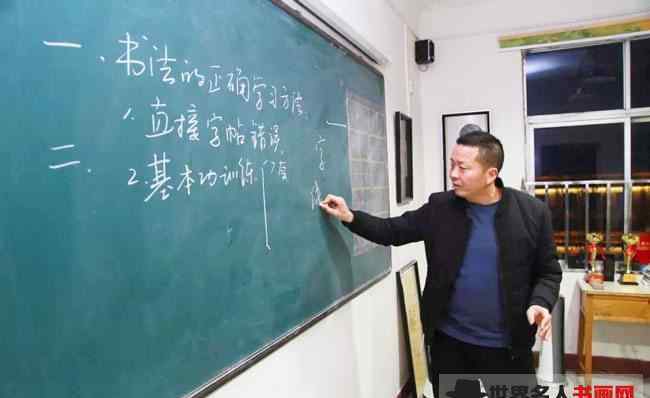 一、书法的正确学习方法
1.直接字帖错误
二、
2.基本功训练
字
世界名人书画网